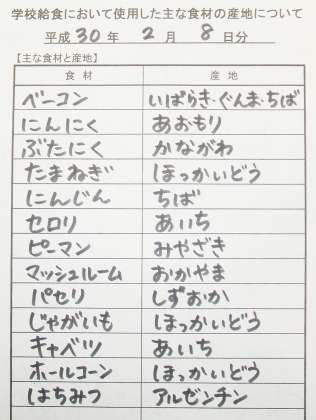 学校給食において使用した主な食材の産地について
平成30年 2月 8日分
【主な食材と産地】
食材 産地
ベーコン いばらき・ぐんま・ちば
にんにく あおもり
ぶたにく かながわ
たまねぎ ほっかいどう
にんじん ちば
セロリ あいち
ピーマン みやざき
マッシュルーム おかやま
パセリ しずおか
じゃがいも ほっかいどう
キャベツ あいち
ホールコーン ほっかいどう
はちみつ アルゼンチン